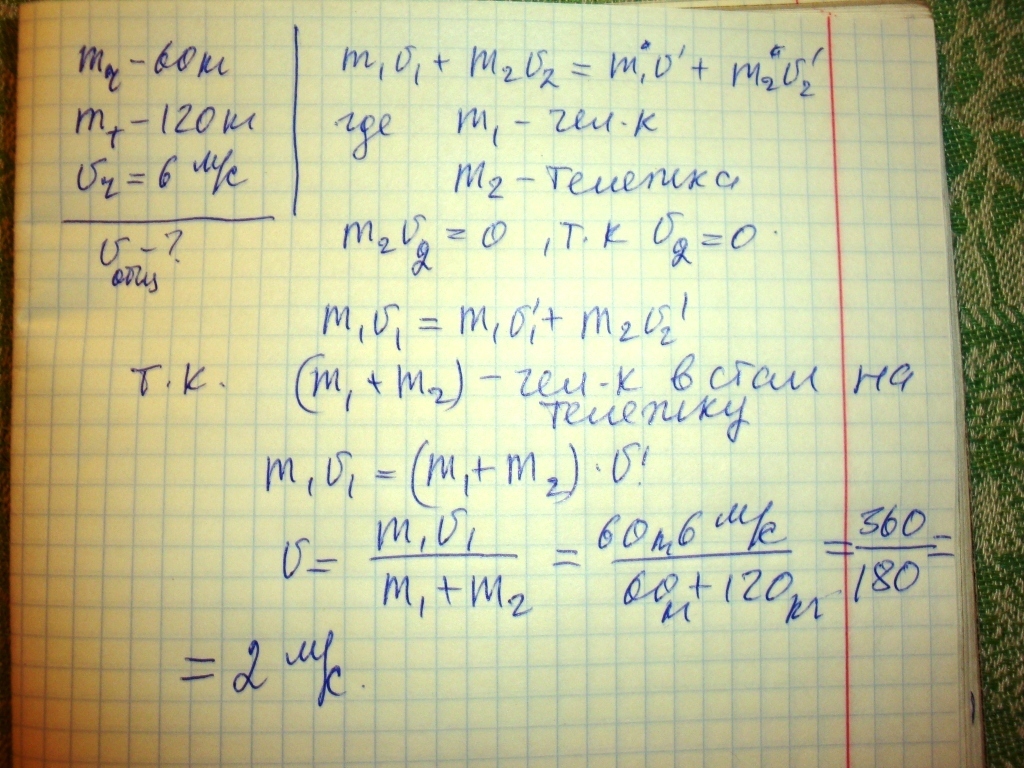 mч – 60 кг
mт – 120 кг
υч = 6 м/с
υобщ – ?
m₁υ₁ + m₂υ₂ = m₁υ' + m₂υ₂'
где m₁ – чел-к
m₂ – тележка
m₂υ₂ = 0, т.к υ₂ = 0
m₁υ₁ = m₁υ₁' + m₂υ₂'
т.к. (m₁ + m₂) – чел-к встал на
тележку
m₁υ₁ = (m₁ + m₂) · υ'
υ = m₁υ₁ / (m₁ + m₂) = 60кг 6 м/с / (60кг + 120кг) = 360/180 =
= 2 м/с.